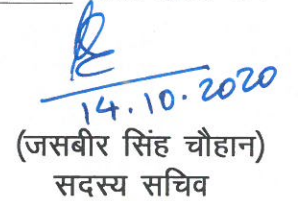 14.10.2020
(जसबीर सिंह चौहान)
सदस्य सचिव